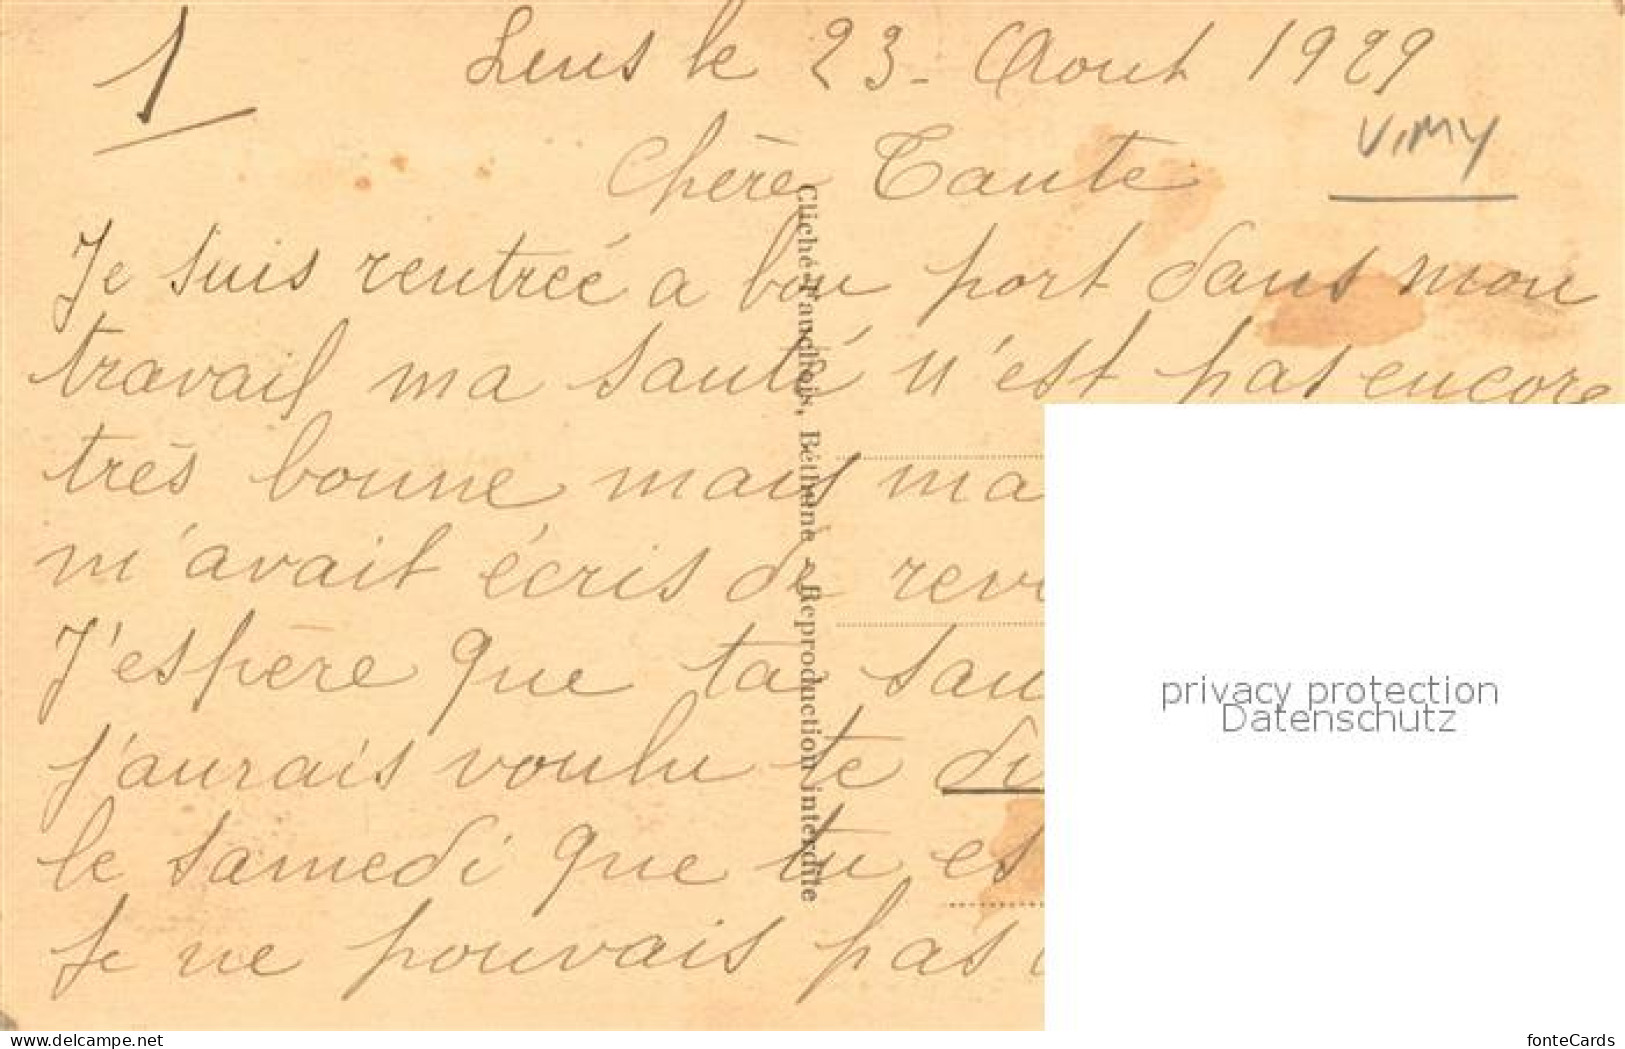 1
Lens le 23 - Aout 1929
VIMY
Chère Tante
Je suis rentreé a bon port dans mon
travail ma santé n'est pas encore
très bonne mais ma
m'avait écris de
J'espère que ta
j'aurais voulu te
le samedi que tu es
Je ne pouvais pas
Cliché Tauchois, Béthune - Reproduction interdite
privacy protection
Datenschutz
www.delcampe.net
fonteCards